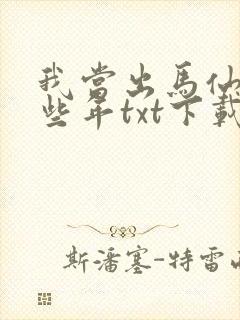 我當出馬仙
些年txt下載
斯潘塞-特雷西